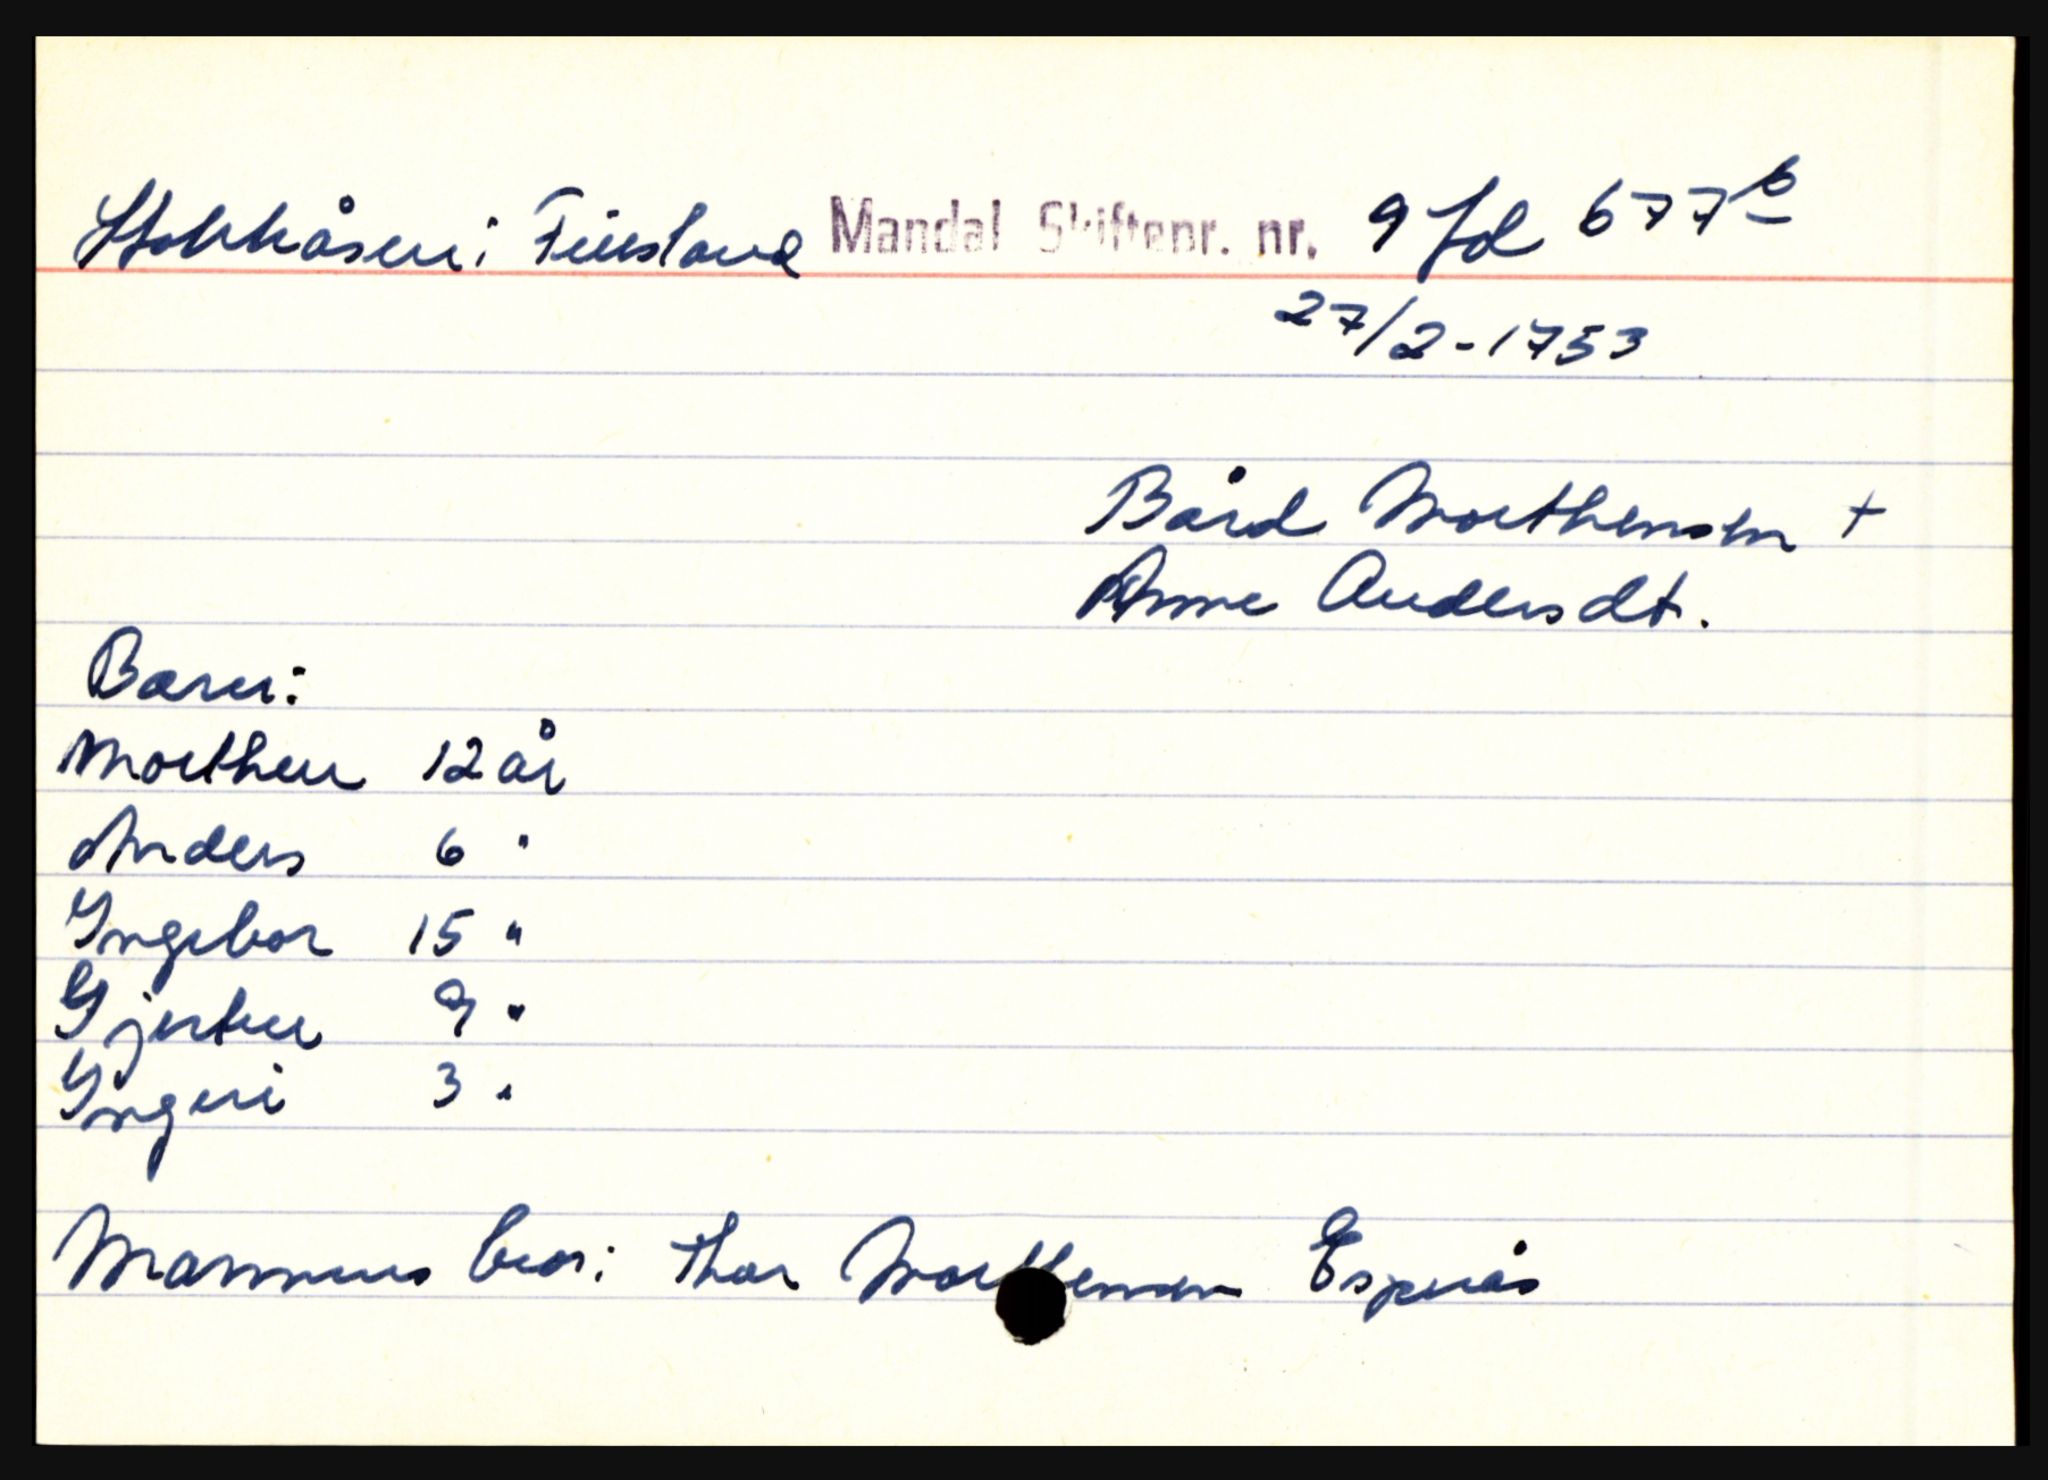 Stokkåsen i Finsland Mandal Skiftepr. nr. 9 fol 677 b
27/2-1753
Bård Morthensen +
Anne Andersdt.
Barn:
Morthen 12 år
Anders 6 "
Yngebor 15 "
Gjertru 9 "
Yngeri 3 "
Mannens bror: Thor Morthensen Espeås